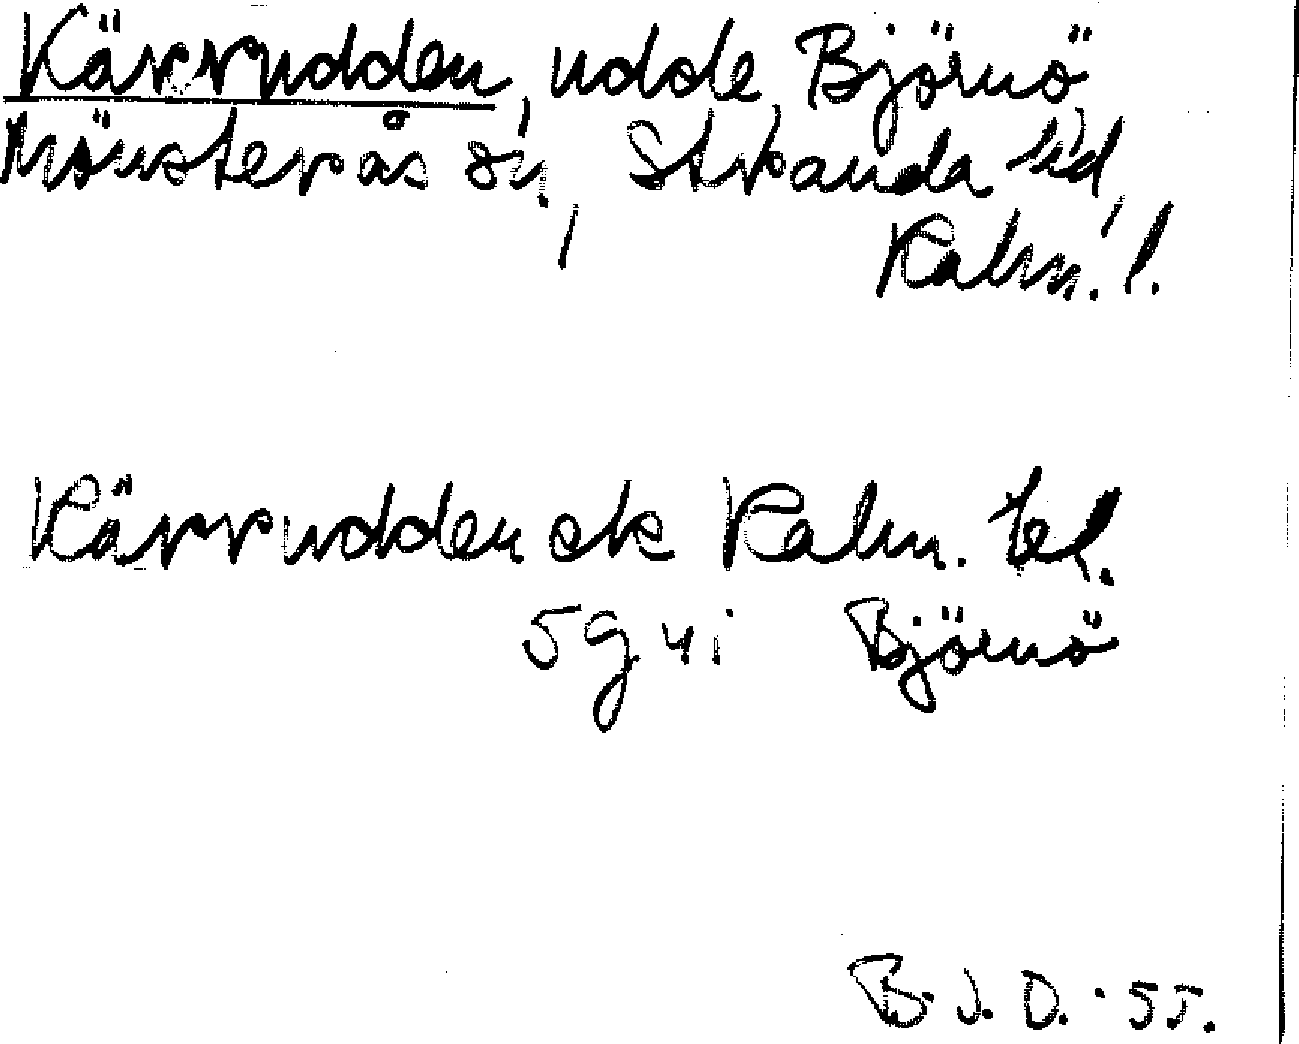 Kärrudden, udde Björnö,
Mönsterås sn, Stranda hd,
Kalm. l.
Kärrudden ek Kalm. tel.
5g 4i Björnö
B. J. D. 55.